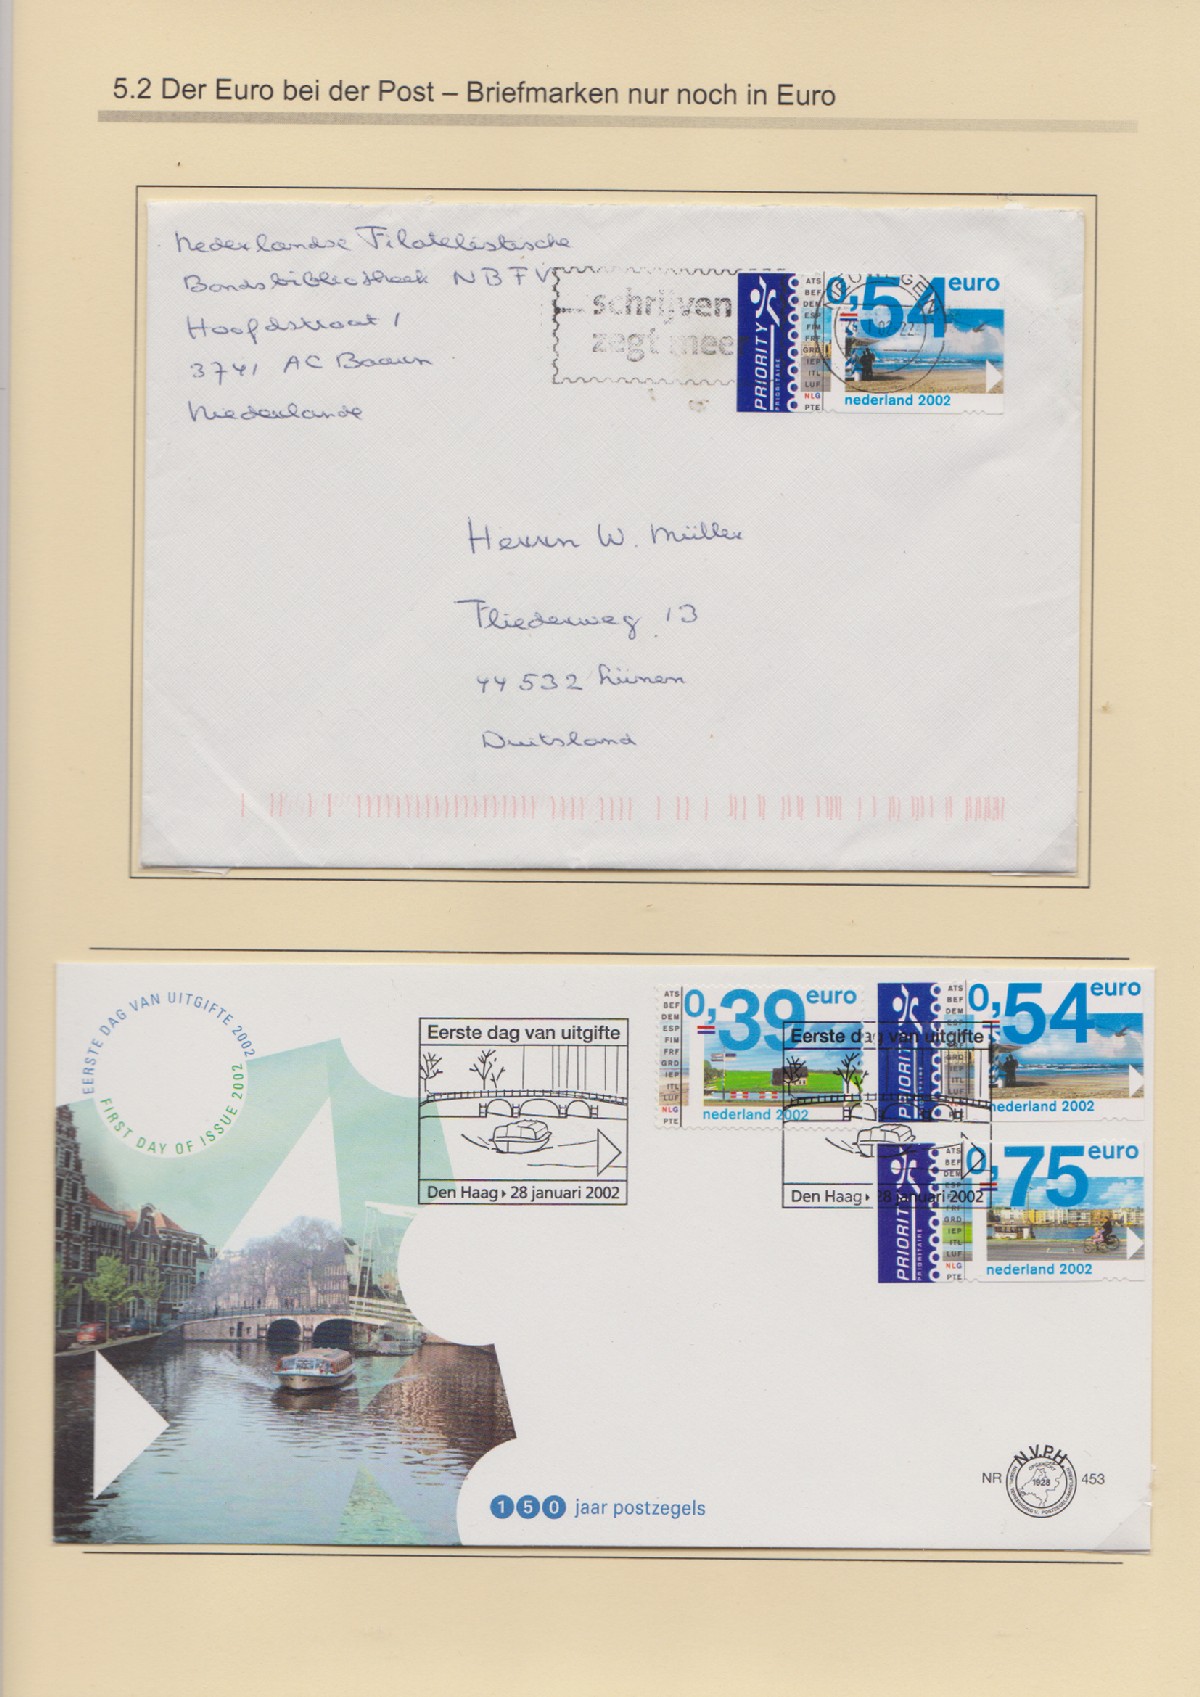 5.2 Der Euro bei der Post – Briefmarken nur noch in Euro
Nederlandse Filatelistische
Bondsbibliotheek NBFV
Hoofdstraat 1
3741 AC Baarn
Niederlande
schrijven
zegt meer
PRIORITY
PRIORITAIRE
ATS
BEF
DEM
ESP
FIM
FRF
GRD
IEP
ITL
LUF
NLG
PTE
0,54 euro
nederland 2002
Herrn W. Müller
Fliederweg 13
44532 Lünen
Duitsland
EERSTE DAG VAN UITGIFTE 2002
FIRST DAY OF ISSUE 2002
Eerste dag van uitgifte
Den Haag 28 januari 2002
ATS
BEF
DEM
ESP
FIM
FRF
GRD
IEP
ITL
LUF
NLG
PTE
0,39 euro
nederland 2002
Eerste dag van uitgifte
Den Haag 28 januari 2002
PRIORITY
ATS
BEF
DEM
0,54 euro
nederland 2002
PRIORITY
PRIORITAIRE
ATS
BEF
DEM
GRD
IEP
ITL
LUF
NLG
PTE
0,75 euro
nederland 2002
150 jaar postzegels
NR
N.V.P.H.
1928
453